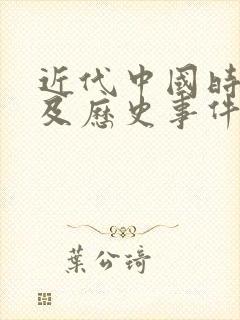 近代中國時
及歷史事件
葉公琦